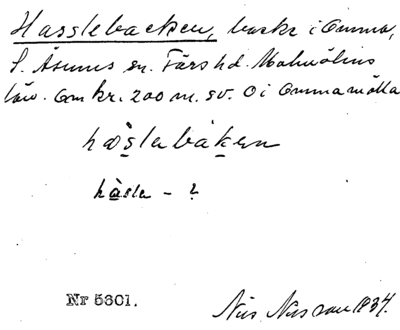 Hasslebacken, backe i Omma,
S. Åsums sn. Färs hd. Malmöhus
län. Om kr. 200 m. sv. O i Ommamölla
hašlabakæn
hàsla - ?
Nr 5301.
Nils Nilsson 1934.